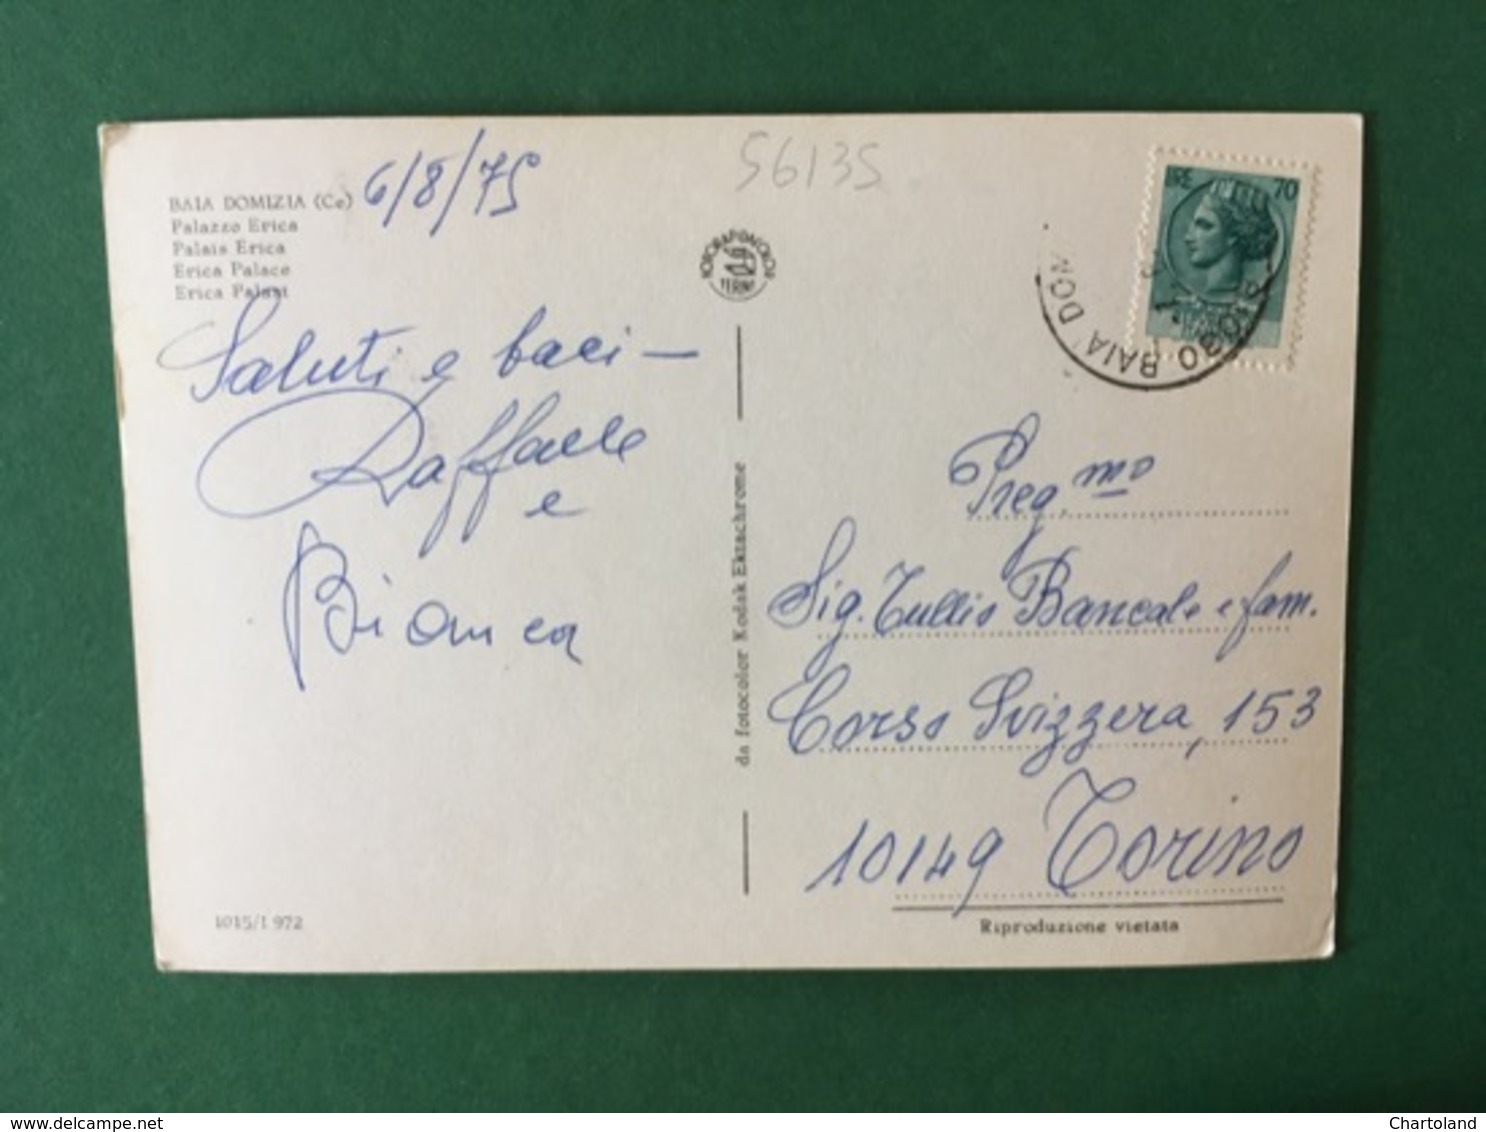 56135
6/8/75
BAIA DOMIZIA (Ce)
Palazzo Erica
Palais Erica
Erica Palace
Erica Palast
Saluti e baci —
Raffaele
e
Bianca
1015/I 972
da fotocolor Kodak Ektachrome
TERNI
LIRE 70
BAIA DOM
Preg.mo
Sig. Tullio Bancale e fam.
Corso Svizzera, 153
10149 Torino
Riproduzione vietata
delcampe.net
Chartoland